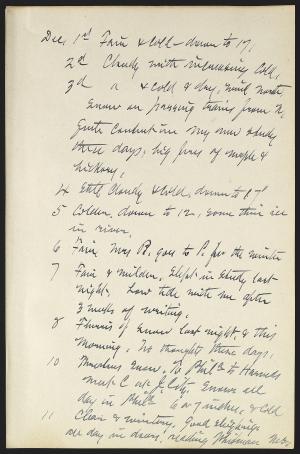 Dec. 1st Fair & cold - down to 17,
2d Cloudy with increasing cold,
3d " & cold & dry, wind north,
Snow on passing trains from N.
Quite content in my new study
these days, big fires of maple &
hickory,
4 Still cloudy & cold, down to 18°
5 Colder, down to 12, some thin ice
in river.
6 Fair, Mrs B. goes to P. for the winter
7 Fair & milder. Slept in study last
night. Low tide with me after
3 weeks of writing.
8 Flurries of snow last night & this
morning. No thoughts these days,
10 Snow, To Phila to Harneds
meet C at J. City. Snows all
day in Phila 6 or 7 inches, & cold
11 Clear & wintery, Good sleighing
all day in doors, reading Whitman